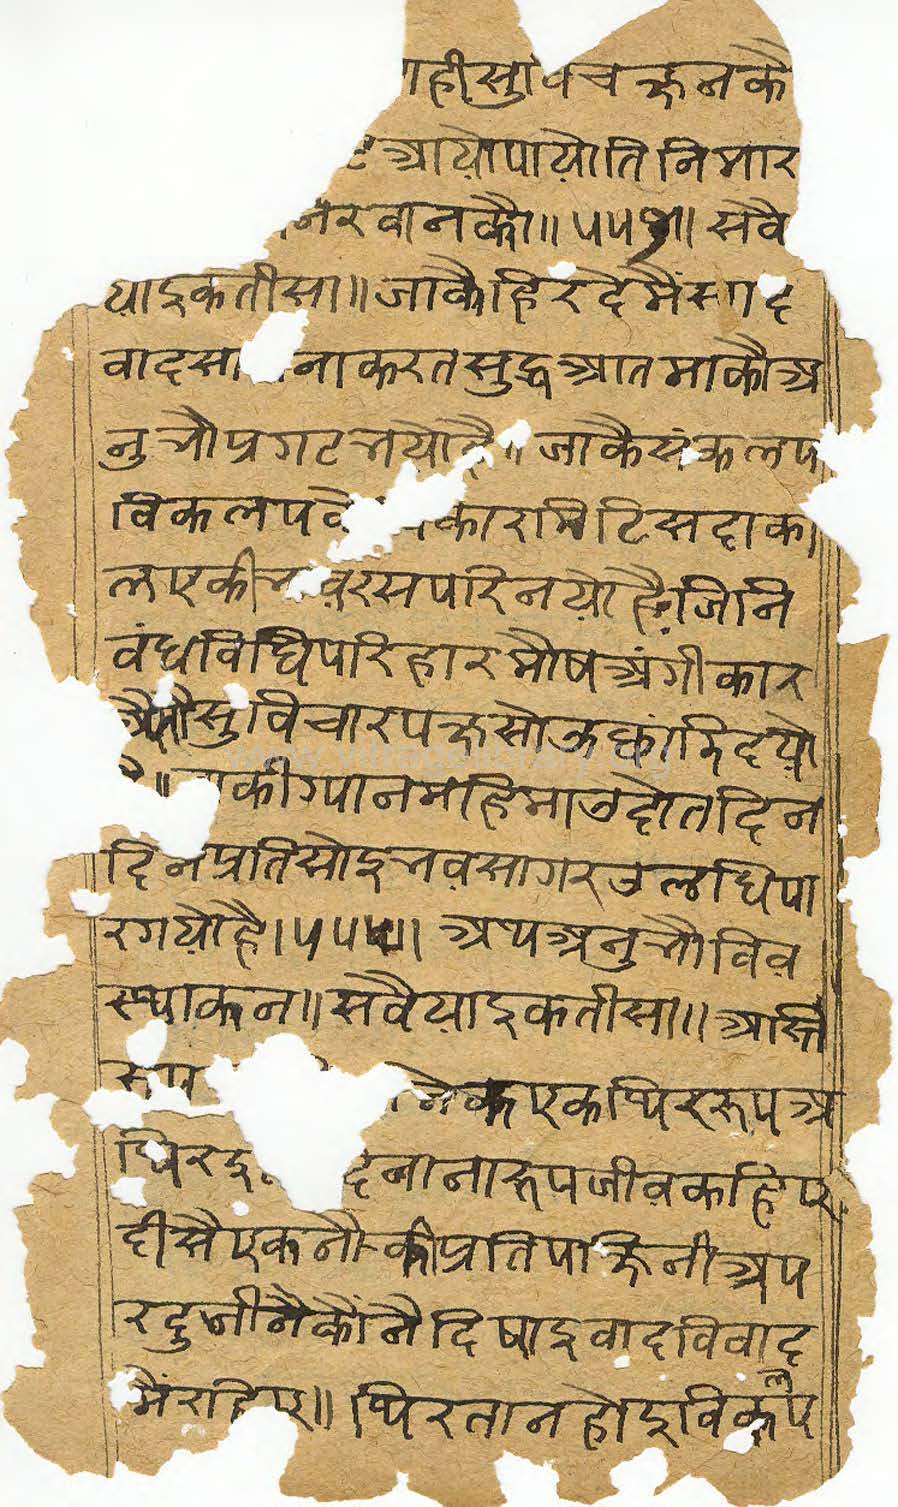 ाही सुविचक्षनकै
आयौ पायौ तिनि मार
वानकौ ॥ ५५ ॥ सवै
या इकतीसा ॥ जाकै हिरदै मैं स्याद
वाद सा ना करत सुद्ध आतमाकौ अ
नुभौ प्रगट भयौ है ॥ जाकै संकलप
विकलप के कार मिटि सदा का
ल एकी भाव रस परिनयौ है जिनि
बंध विधि परिहार मौष अंगीकार
ऐसौ सुविचार पक्ष सोऊ छांडि दयौ
है ॥ ाकी ग्यान महिमा उदोत दिन
दिन प्रति सोइ भवसागर उलंघि पा
र गयौ है ॥ ५५ ॥ अथ अनुभौ विव
स्था कथन ॥ सवैया इकतीसा ॥ अस्ति
रूप नेक एक थिररूप अ
थिर इ दि नानारूप जीव कहिए
दीसै एक नै की प्रतिपक्षिनी अप
र दुजी नैकौं न दिषाइ वाद विवाद
मैं रहिए ॥ थिरता न होइ विकलप
www.vitragelibrary.org